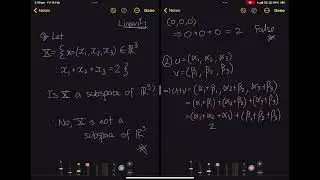 Linearity
Q/ Let
X = {x=(x₁, x₂, x₃) ∈ ℝ³
: x₁ + x₂ + x₃ = 2}
Is X a subspace of ℝ³?
∴ No, X is not a
subspace of ℝ³.
(0,0,0)
→ 0+0+0 = 2 False
② u=(α₁, α₂, α₃)
v=(β₁, β₂, β₃)
→ u+v = (α₁+β₁, α₂+β₂, α₃+β₃)
= (α₁+β₁) + (α₂+β₂) + (α₃+β₃)
= (α₁+α₂+α₃) + (β₁+β₂+β₃)
2